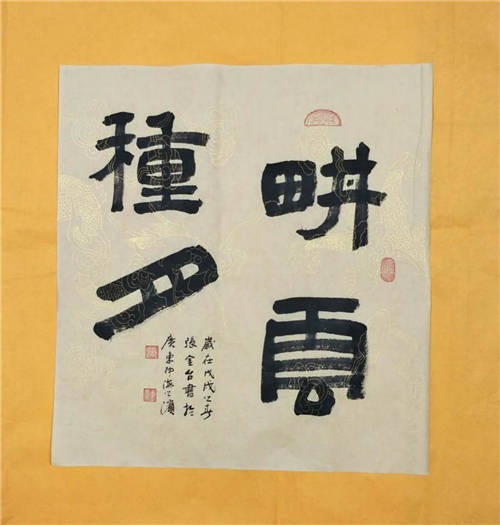 畊雲
種月
歲在戊戌之春
張金台書於
廣東海之濱